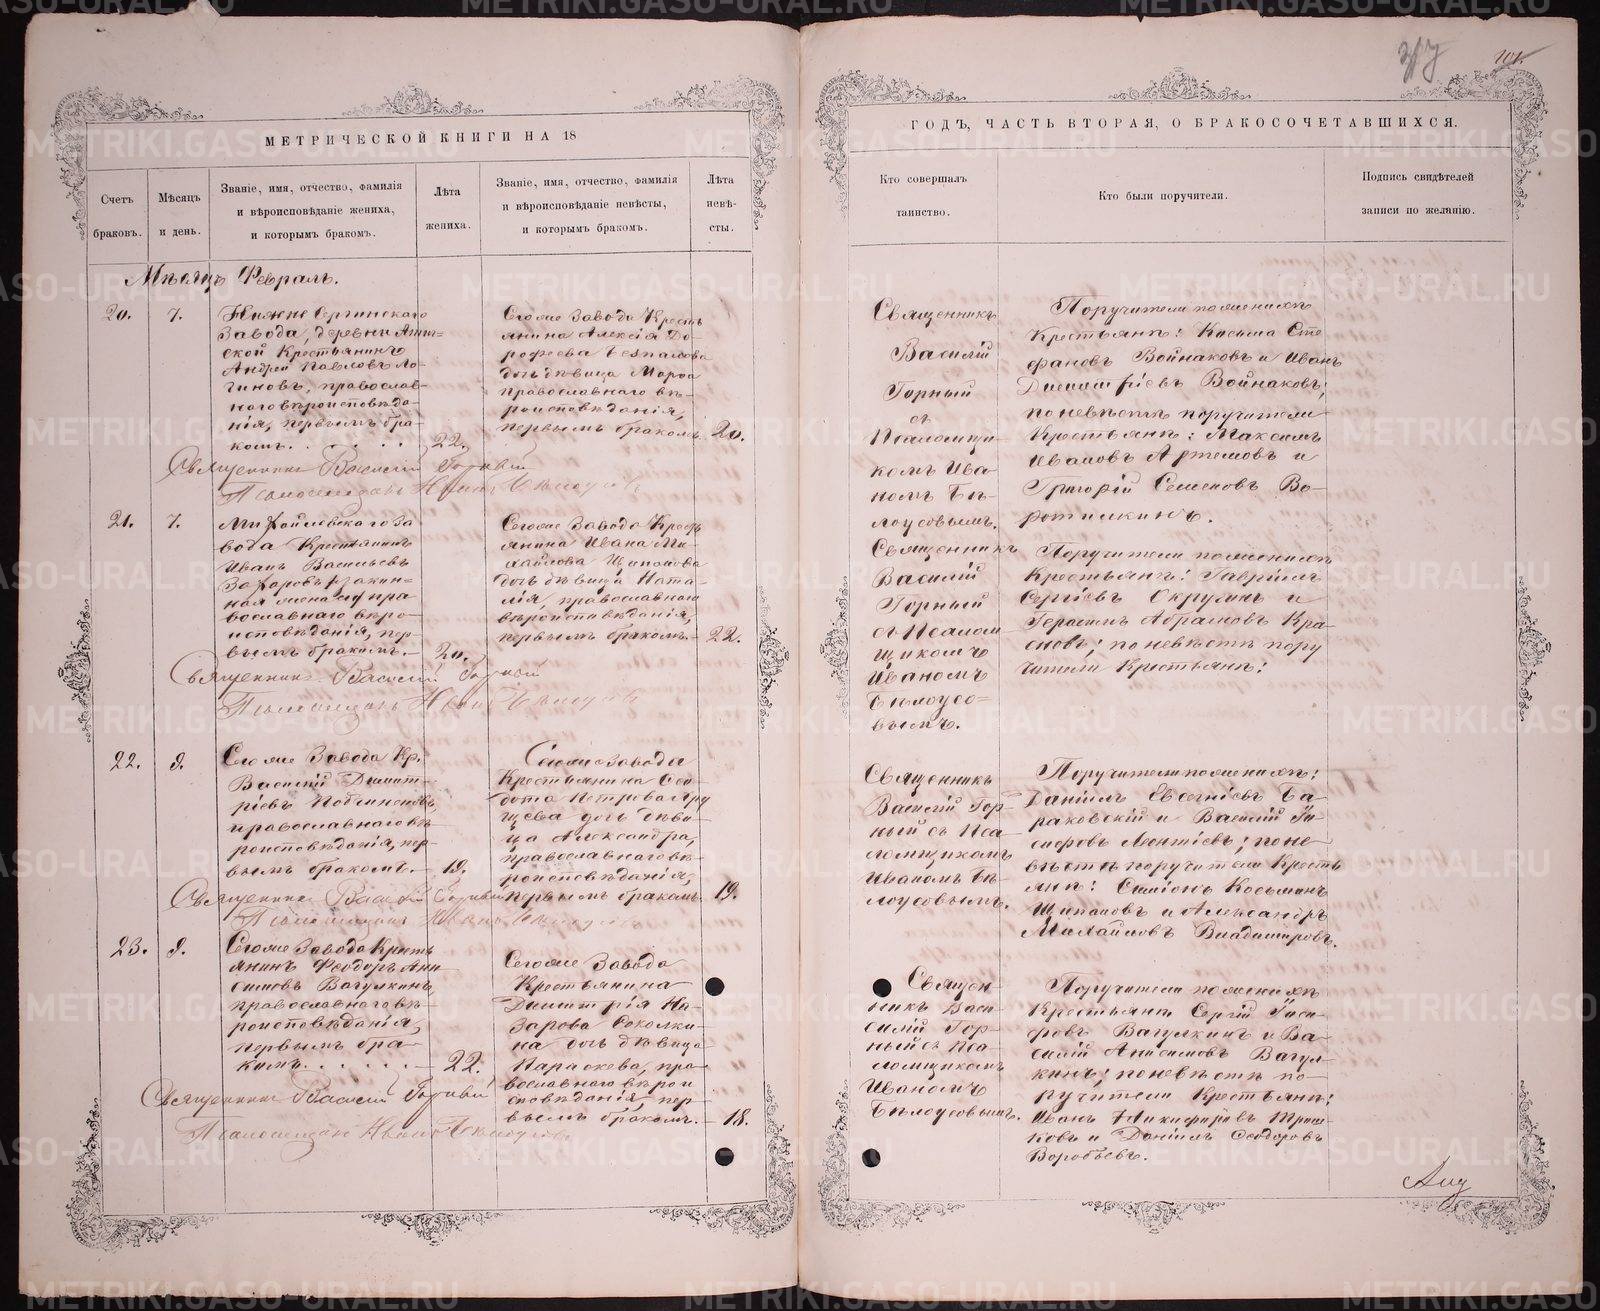 МЕТРИЧЕСКОЙ КНИГИ НА 18
Счетъ
браковъ.
Мѣсяцъ
и день.
Званіе, имя, отчество, фамилія
и вѣроисповѣданіе жениха,
и которымъ бракомъ.
Лѣта
жениха.
Званіе, имя, отчество, фамилія
и вѣроисповѣданіе невѣсты,
и которымъ бракомъ.
Лѣта
невѣ-
сты.
Мѣсяцъ Февраль.
20.
7.
Нижне Сергинскаго
Завода, деревни
ской Крестьянинъ
Андрей Павловъ Ло-
гиновъ, православ-
наго вѣроисповѣда-
нія, первымъ бра-
комъ.
22.
Сего же Завода Кресть
янина Алексія До-
рофеева
дочь дѣвица
православнаго вѣ-
роисповѣданія,
первымъ бракомъ.
20.
Священникъ Василій Горный
Псаломщикъ Иванъ Бѣлоусовъ
21.
7.
Михайловскаго За
вода Крестьянинъ
Иванъ Васильевъ
Захаровъ
православнаго вѣро-
исповѣданія, пер-
вымъ бракомъ.
20.
Сего же Завода Кресть
янина Ивана Ми-
хайлова Щипанова
дочь дѣвица Ната-
лія, православнаго
вѣроисповѣданія,
первымъ бракомъ.
22.
Священникъ Василій Горный
Псаломщикъ Иванъ Бѣлоусовъ
22.
9.
Сего же Завода Кр.
Василій Димит-
ріевъ
православнаго вѣ-
роисповѣданія, пер-
вымъ бракомъ.
19.
Сего же Завода
Крестьянина Ѳео-
дота Петрова
дочь дѣви-
ца Александра,
православнаго вѣ-
роисповѣданія,
первымъ бракомъ.
19.
Священникъ Василій Горный
Псаломщикъ Иванъ Бѣлоусовъ
23.
9.
Сего же Завода Кресть
янинъ Ѳеодоръ Ани
симовъ Вагулкинъ,
православнаго вѣ-
роисповѣданія,
первымъ бра-
комъ.
22.
Сего же Завода
Крестьянина
Димитрія На-
зарова Соколки-
на дочь дѣвица
Параскева, пра-
вославнаго вѣрои
сповѣданія, пер-
вымъ бракомъ.
18.
Священникъ Василій Горный
Псаломщикъ Иванъ Бѣлоусовъ
101.
ГОДЪ, ЧАСТЬ ВТОРАЯ, О БРАКОСОЧЕТАВШИХСЯ.
Кто совершалъ
таинство.
Кто были поручители.
Подпись свидѣтелей
записи по желанію.
Священникъ
Василій
Горный
съ
Псаломщи-
комъ Ива-
номъ Бѣ-
лоусовымъ.
Поручители по женихѣ
Крестьяне: Косьма Сте
фановъ Войнаковъ и Иванъ
Димитріевъ Войнаковъ;
по невѣстѣ поручители
Крестьяне: Максимъ
Ивановъ Артемовъ и
Григорій Семеновъ Во-
ротилкинъ.
Священникъ
Василій
Горный
съ Псалом
щикомъ
Иваномъ
Бѣлоусо-
вымъ.
Поручители по женихѣ
Крестьяне: Гавріилъ
Сергіевъ Окружинъ и
Герасимъ Абрамовъ Кра-
сновъ; по невѣстѣ пору
чители Крестьяне:
Священникъ
Василій Гор-
ный съ Пса-
ломщикомъ
Иваномъ Бѣ-
лоусовымъ.
Поручители по женихѣ:
Даніилъ Евгеніевъ Ба-
раковскій и Василій Іо-
сифовъ Леонтіевъ; по не-
вѣстѣ поручители Кресть
яне: Симеонъ Косьминъ
Щипановъ и Александръ
Михайловъ Владимировъ.
Священ-
никъ Васи-
силій Гор-
ный съ Пса-
ломщикомъ
Иваномъ
Бѣлоусовымъ.
Поручители по женихѣ
Крестьяне Сергій Іоси-
фовъ Вагулкинъ и Ва-
силій Анисимовъ Вагул-
кинъ; по невѣстѣ по-
ручители Крестьяне:
Иванъ Никифоровъ
ковъ и Даніилъ Ѳеодоровъ
Воробьевъ.
METRIKI.GASO-URAL.RU